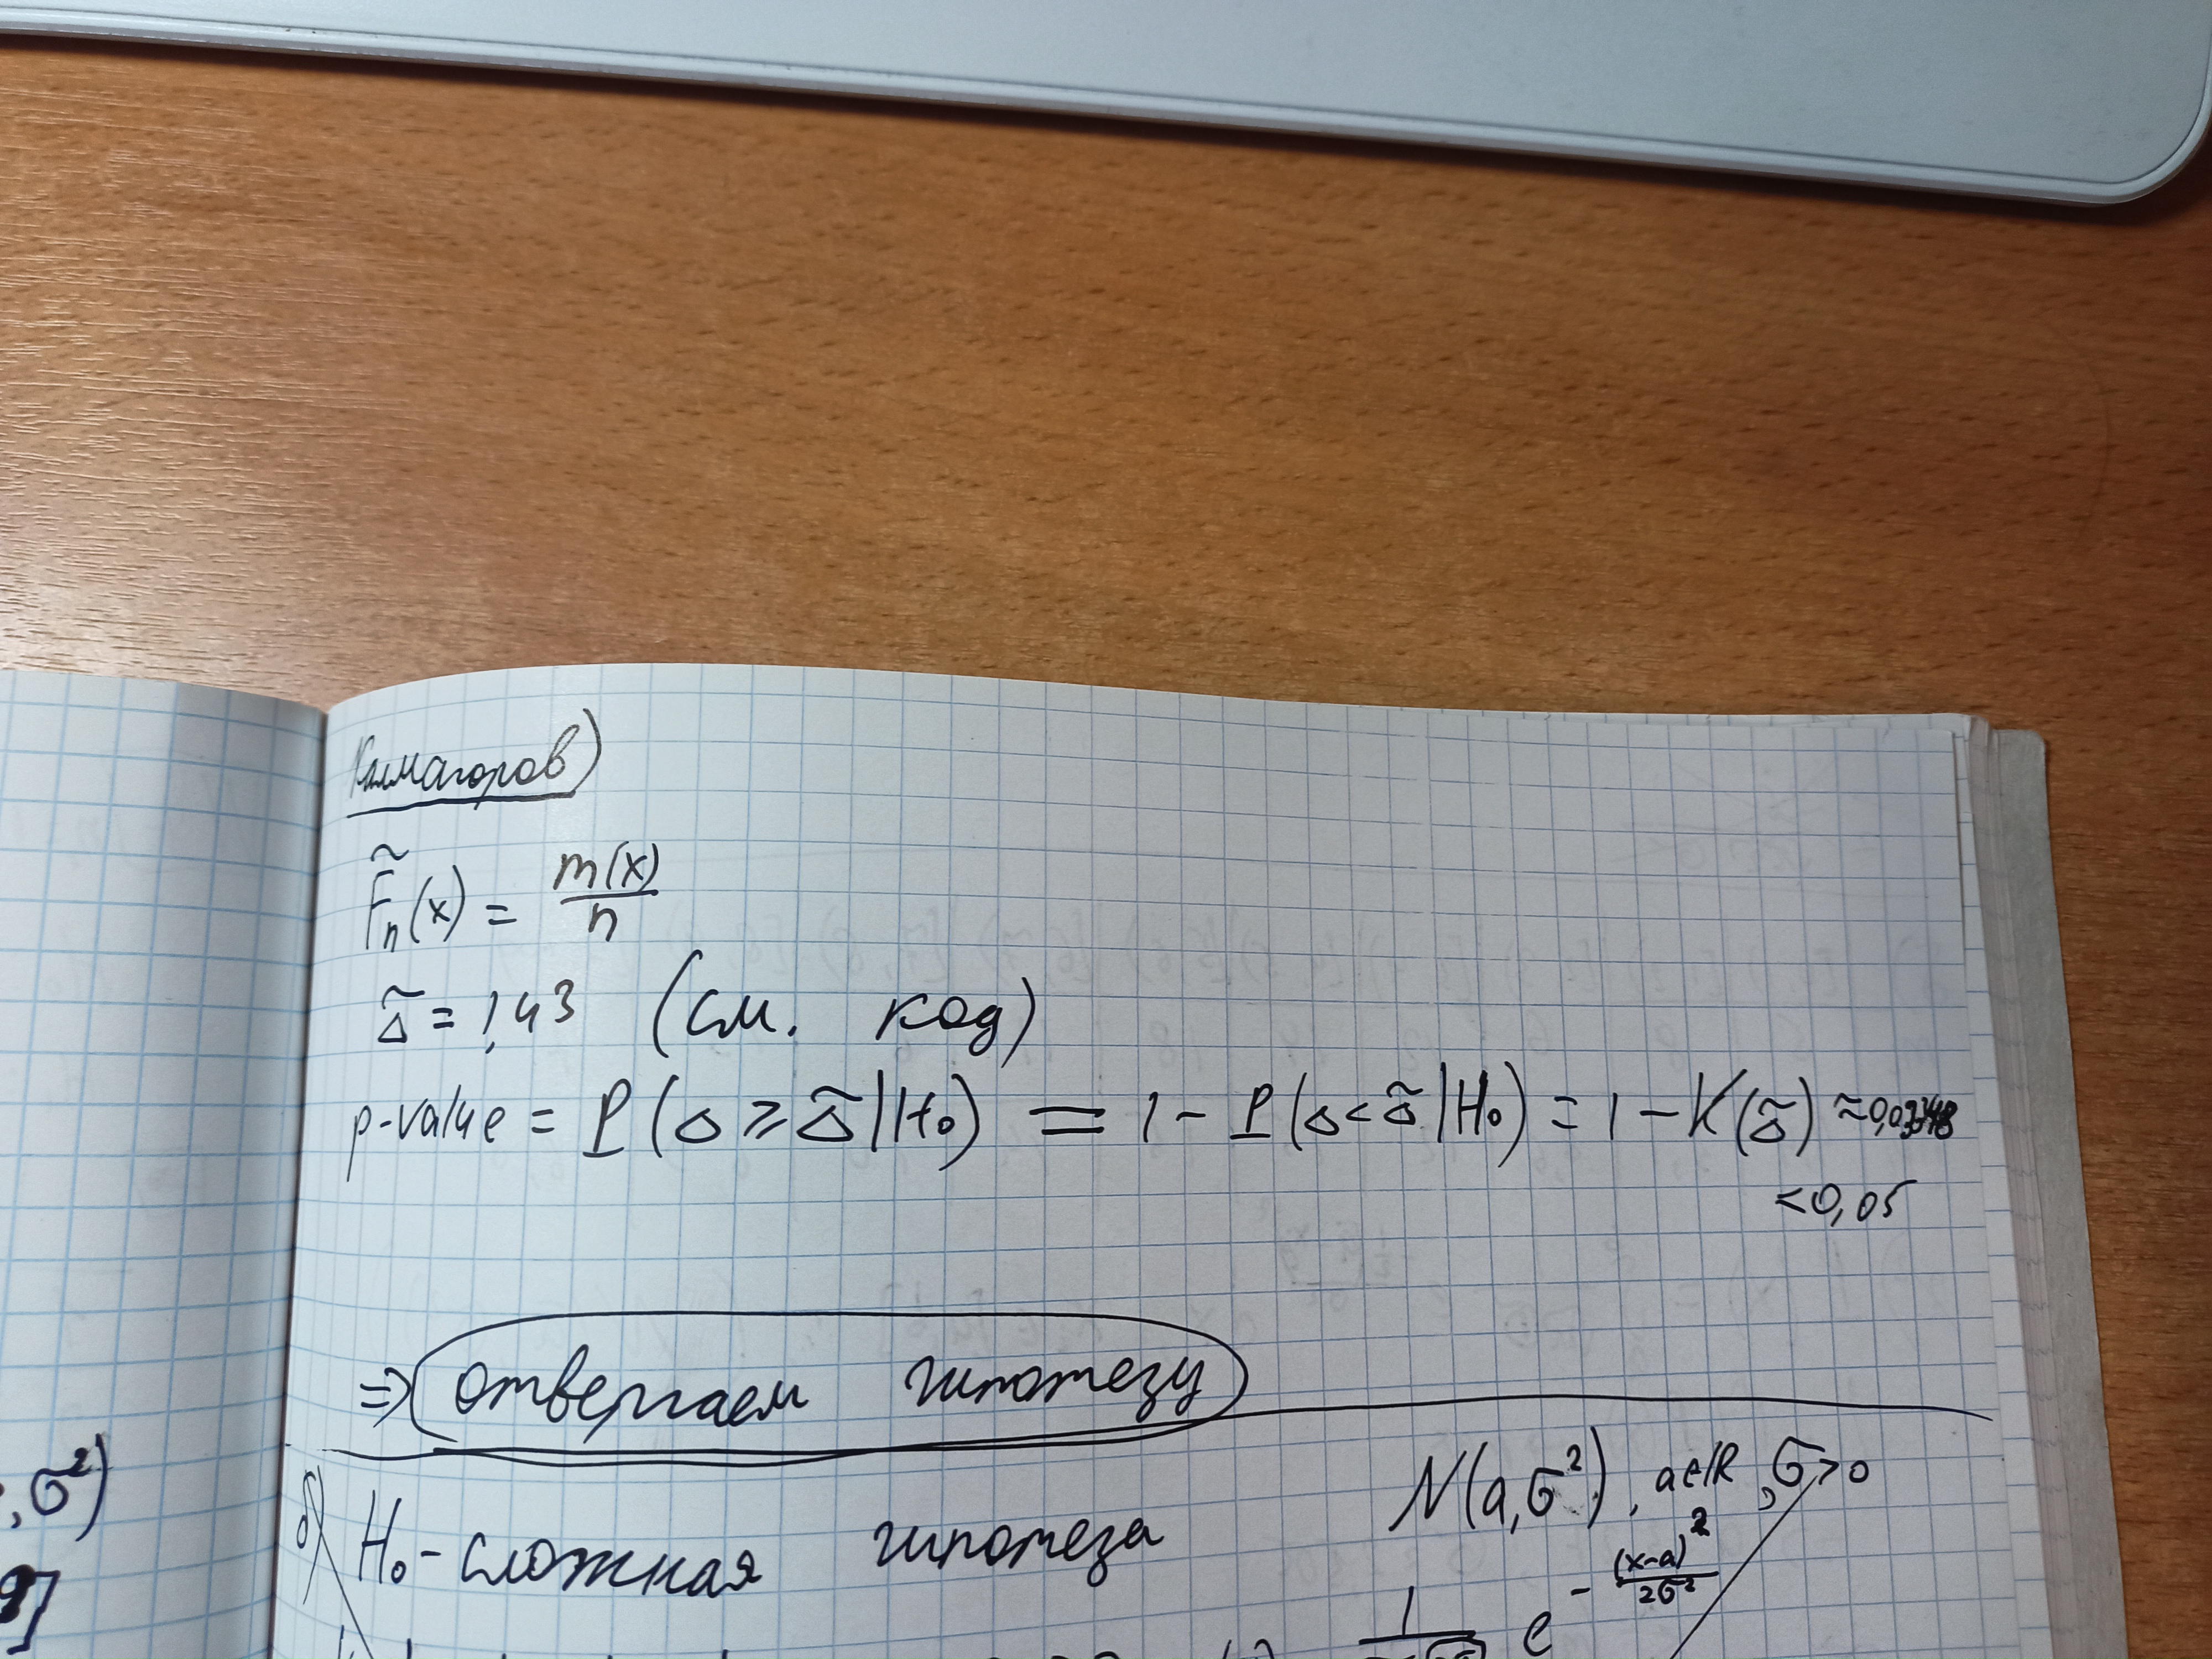 Колмагоров)
F̃ₙ(x) = m(x)/n
Δ̃ = 1,43 (см. код)
p-value = P(Δ ≥ Δ̃ | H₀) = 1 - P(Δ < Δ̃ | H₀) = 1 - K(Δ̃) ≈
< 0,05
=> отвергаем гипотезу
, σ²)
б) H₀ - сложная гипотеза N(a, σ²), a∈ℝ, σ>0
9]
1 e^(-(x-a)²/2σ²)